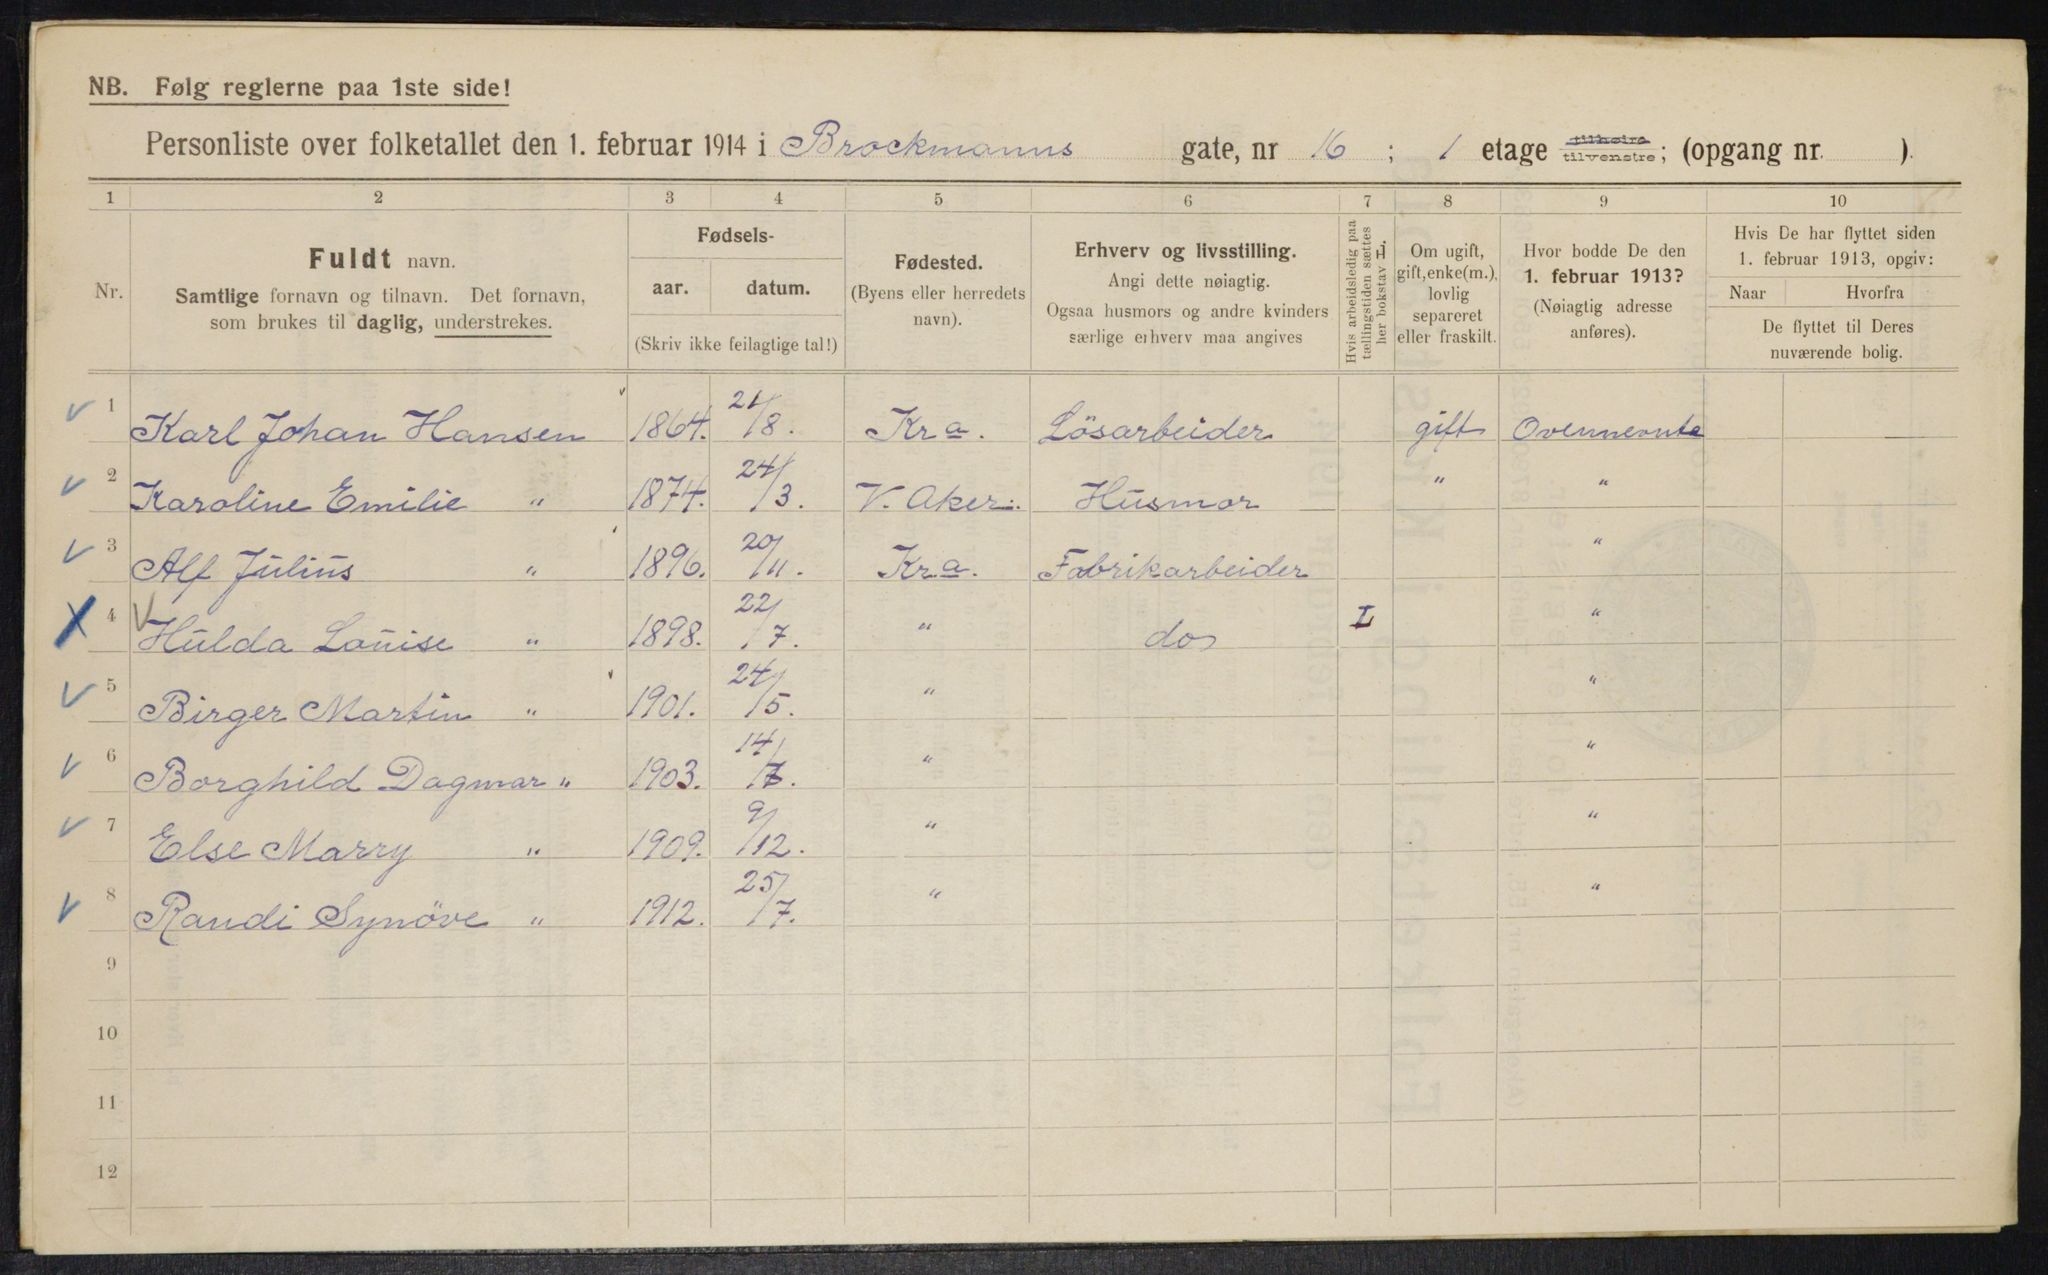 NB. Følg reglerne paa 1ste side!
Personliste over folketallet den 1. februar 1914 i Brockmanns gate, nr 16 ; 1 etage tilhøire tilvenstre; (opgang nr. ).
1 2 3 4 5 6 7 8 9 10
Nr.
Fuldt navn.
Samtlige fornavn og tilnavn. Det fornavn,
som brukes til daglig, understrekes.
Fødsels-
aar. datum.
(Skriv ikke feilagtige tal!)
Fødested.
(Byens eller herredets
navn).
Erhverv og livsstilling.
Angi dette nøiagtig.
Ogsaa husmors og andre kvinders
særlige erhverv maa angives
Hvis arbeidsledig paa
tællingstiden sættes
her bokstav L.
Om ugift,
gift, enke(m.),
lovlig
separeret
eller fraskilt.
Hvor bodde De den
1. februar 1913?
(Nøiagtig adresse
anføres).
Hvis De har flyttet siden
1. februar 1913, opgiv:
Naar Hvorfra
De flyttet til Deres
nuværende bolig.
1 Karl Johan Hansen 1864. 21/8. Kra. Lösarbeider gift Ovennevnte
2 Karoline Emilie " 1874. 24/3. V. Aker. Husmor " "
3 Alf Julius " 1896. 20/11. Kra. Fabrikarbeider "
4 Hulda Louise " 1898. 22/7. " do L "
5 Birger Martin " 1901. 24/5. " "
6 Borghild Dagmar " 1903. 14/7. " "
7 Else Marry " 1909. 9/12. " "
8 Randi Synöve " 1912. 25/7. " "
9
10
11
12